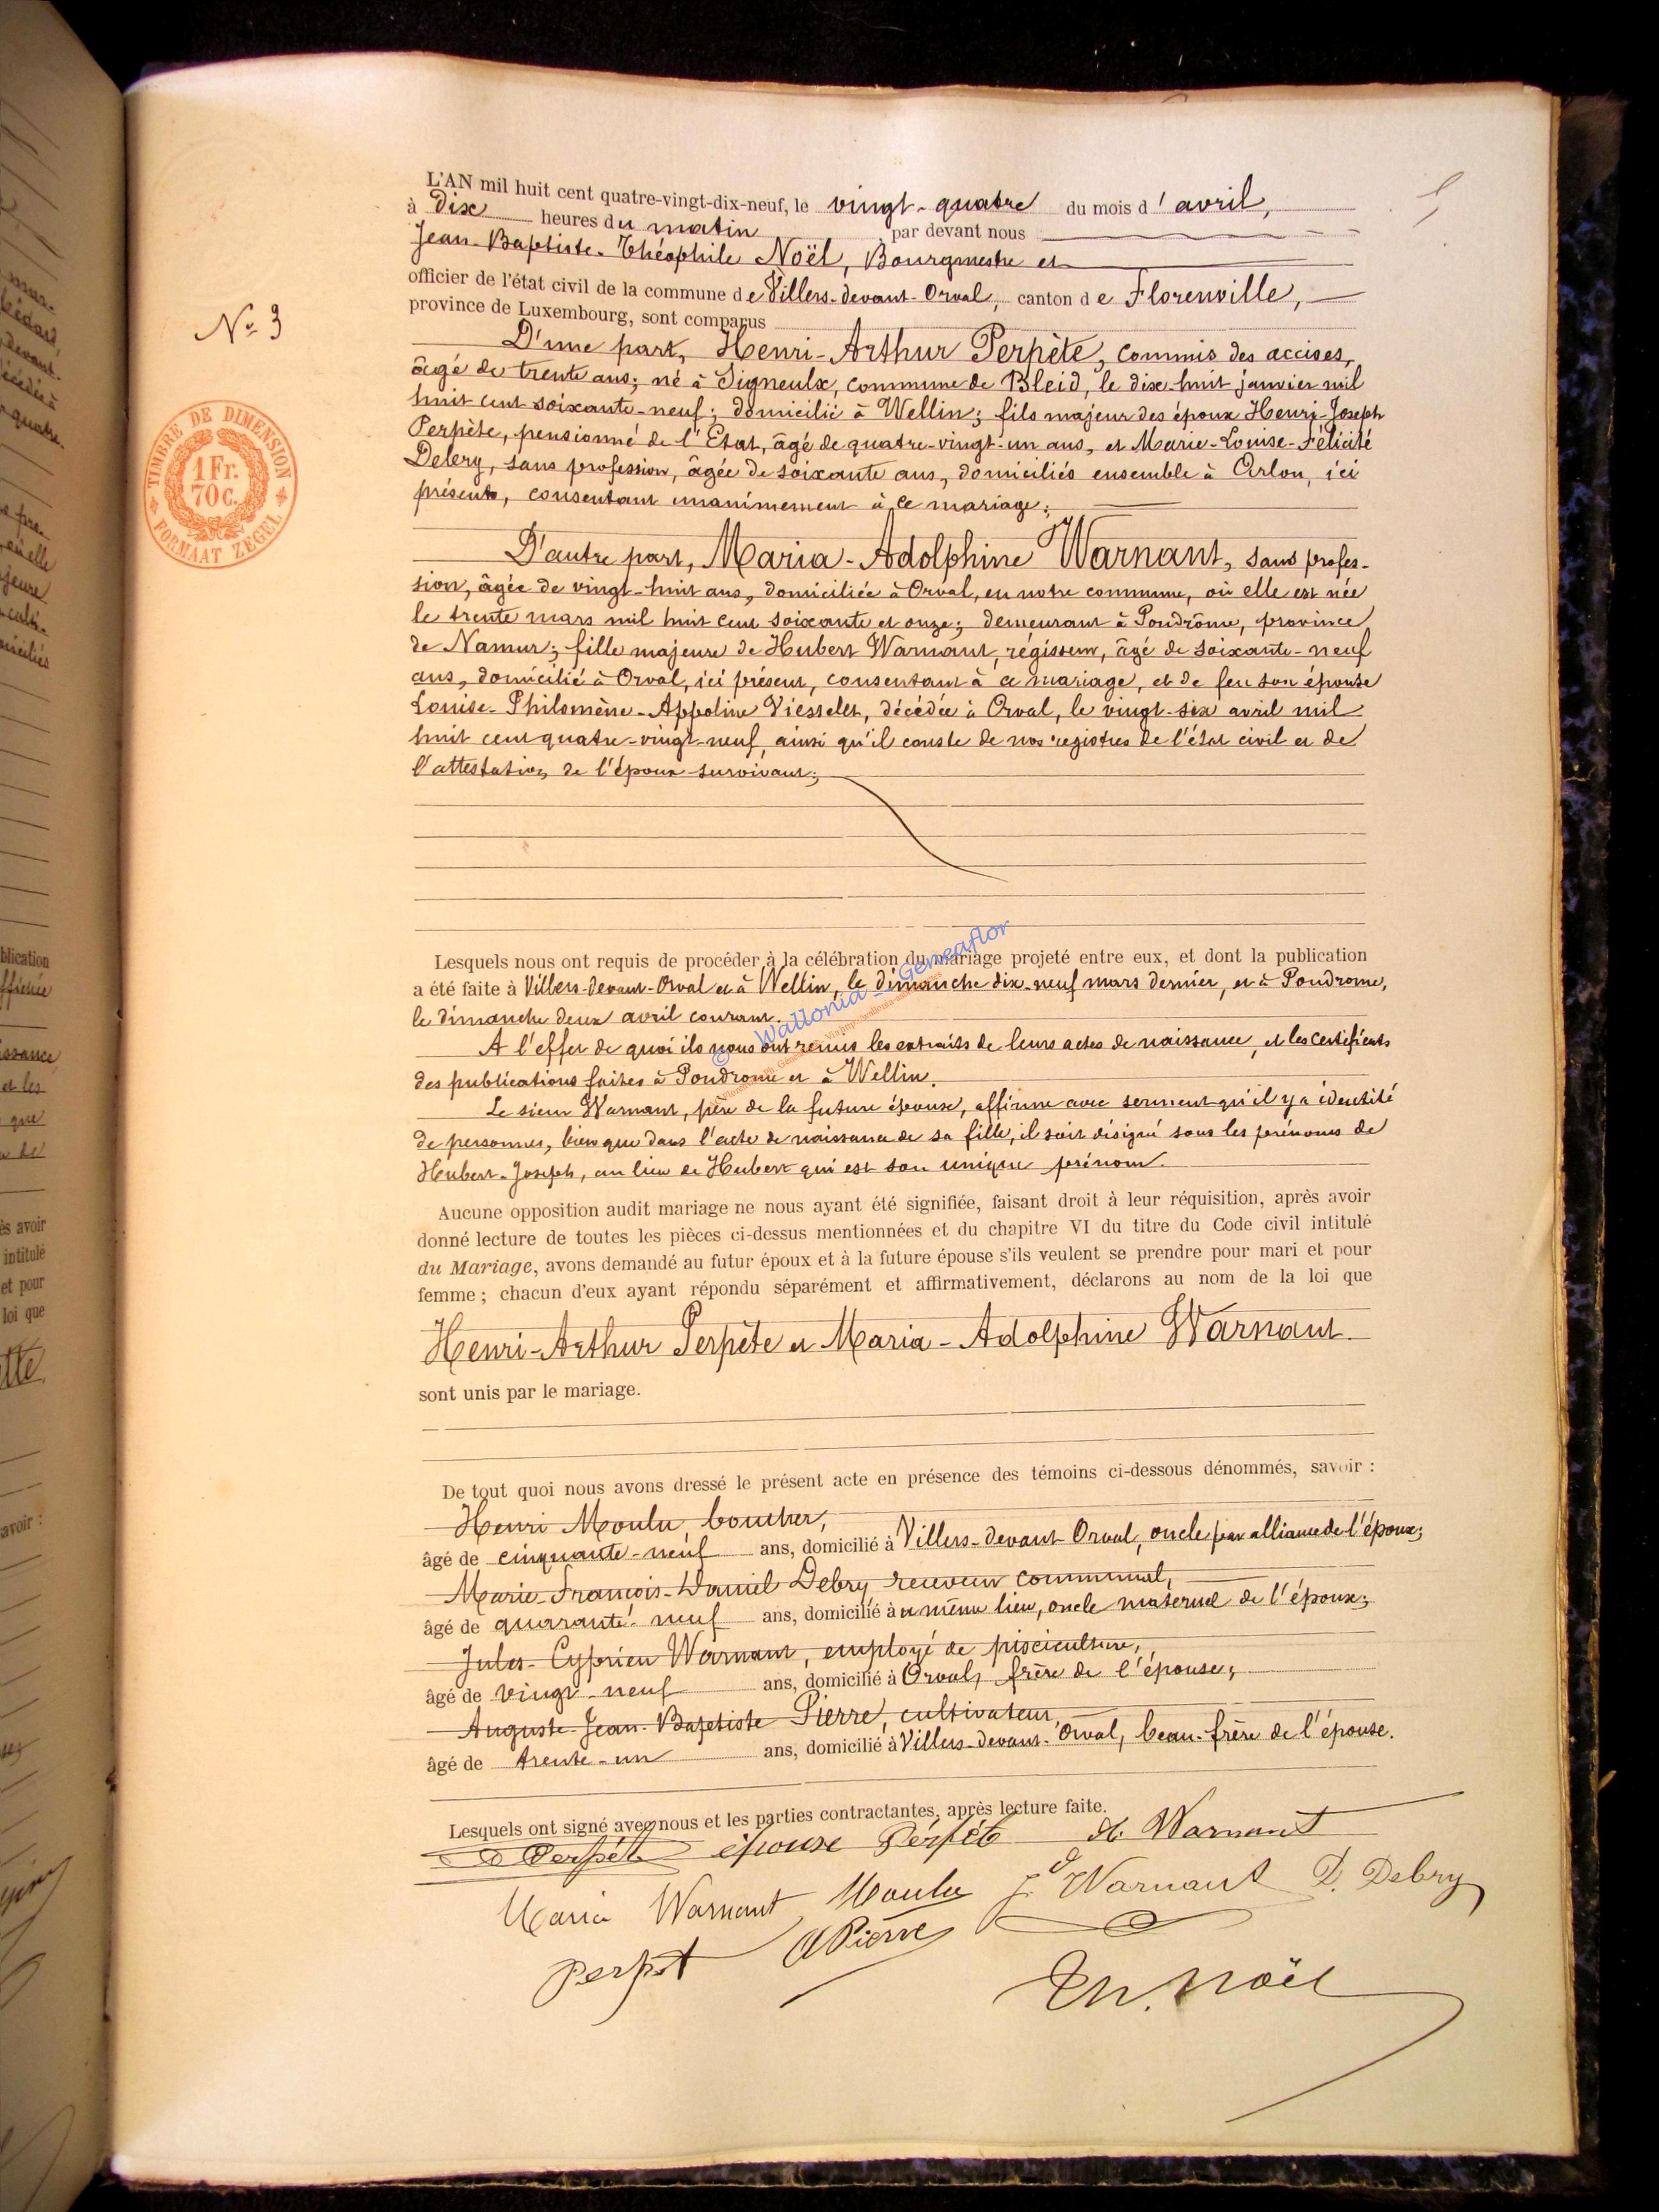 L'AN mil huit cent quatre-vingt-dix-neuf, le vingt-quatre du mois d'avril,
à dix heures du matin par devant nous
Jean-Baptiste-Théophile Noël, Bourgmestre et
officier de l'état civil de la commune de Villers-devant-Orval, canton de Florenville,
province de Luxembourg, sont comparus
N° 3
D'une part, Henri-Arthur Perpète, commis des accises,
âgé de trente ans; né à Signeulx, commune de Bleid, le dix-huit janvier mil
huit cent soixante-neuf; domicilié à Wellin; fils majeur des époux Henri-Joseph
Perpète, pensionné de l'Etat, âgé de quatre-vingt-un ans, et Marie-Louise-Félicité
Debry, sans profession, âgée de soixante ans, domiciliés ensemble à Arlon, ici
présents, consentant unanimement à ce mariage;
TIMBRE DE DIMENSION
1 Fr.
70 c.
FORMAAT ZEGEL
D'autre part, Maria-Adolphine Warnant, sans profes-
sion, âgée de vingt-huit ans, domiciliée à Orval, en notre commune, où elle est née
le trente mars mil huit cent soixante et onze; demeurant à Pondrôme, province
de Namur; fille majeure de Hubert Warnant, régisseur, âgé de soixante-neuf
ans, domicilié à Orval, ici présent, consentant à ce mariage, et de feu son épouse
Louise-Philomène-Appoline Viesselet, décédée à Orval, le vingt-six avril mil
huit cent quatre-vingt-neuf, ainsi qu'il conste de nos registres de l'état civil et de
l'attestation de l'époux survivant;
Lesquels nous ont requis de procéder à la célébration du mariage projeté entre eux, et dont la publication
a été faite à Villers-devant-Orval et à Wellin, le dimanche dix-neuf mars dernier, et à Pondrome,
le dimanche deux avril courant.
© Wallonia - Geneaflor
A l'effet de quoi ils nous ont remis les extraits de leurs actes de naissance, et les certificats
des publications faites à Pondrome et à Wellin.
Le sieur Warnant, père de la future épouse, affirme avec serment qu'il y a identité
de personnes, bien que dans l'acte de naissance de sa fille, il soit désigné sous les prénoms de
Hubert-Joseph, au lieu de Hubert qui est son unique prénom.
Aucune opposition audit mariage ne nous ayant été signifiée, faisant droit à leur réquisition, après avoir
donné lecture de toutes les pièces ci-dessus mentionnées et du chapitre VI du titre du Code civil intitulé
du Mariage, avons demandé au futur époux et à la future épouse s'ils veulent se prendre pour mari et pour
femme ; chacun d'eux ayant répondu séparément et affirmativement, déclarons au nom de la loi que
Henri-Arthur Perpète et Maria-Adolphine Warnant.
sont unis par le mariage.
De tout quoi nous avons dressé le présent acte en présence des témoins ci-dessous dénommés, savoir :
Henri Moulu, boucher,
âgé de cinquante-neuf ans, domicilié à Villers-devant-Orval, oncle par alliance de l'époux;
Marie-François-Daniel Debry, receveur communal,
âgé de quarante-neuf ans, domicilié à u même lieu, oncle maternel de l'époux;
Jules-Cyprien Warnant, employé de pisciculture,
âgé de vingt-neuf ans, domicilié à Orval, frère de l'épouse;
Auguste-Jean-Baptiste Pierre, cultivateur,
âgé de trente-un ans, domicilié à Villers-devant-Orval, beau-frère de l'épouse.
Lesquels ont signé avec nous et les parties contractantes, après lecture faite.
Perpète épouse Perpète H. Warnant
Maria Warnant Moulu J. Warnant D. Debry
Perpet A Pierre
Th. Noël